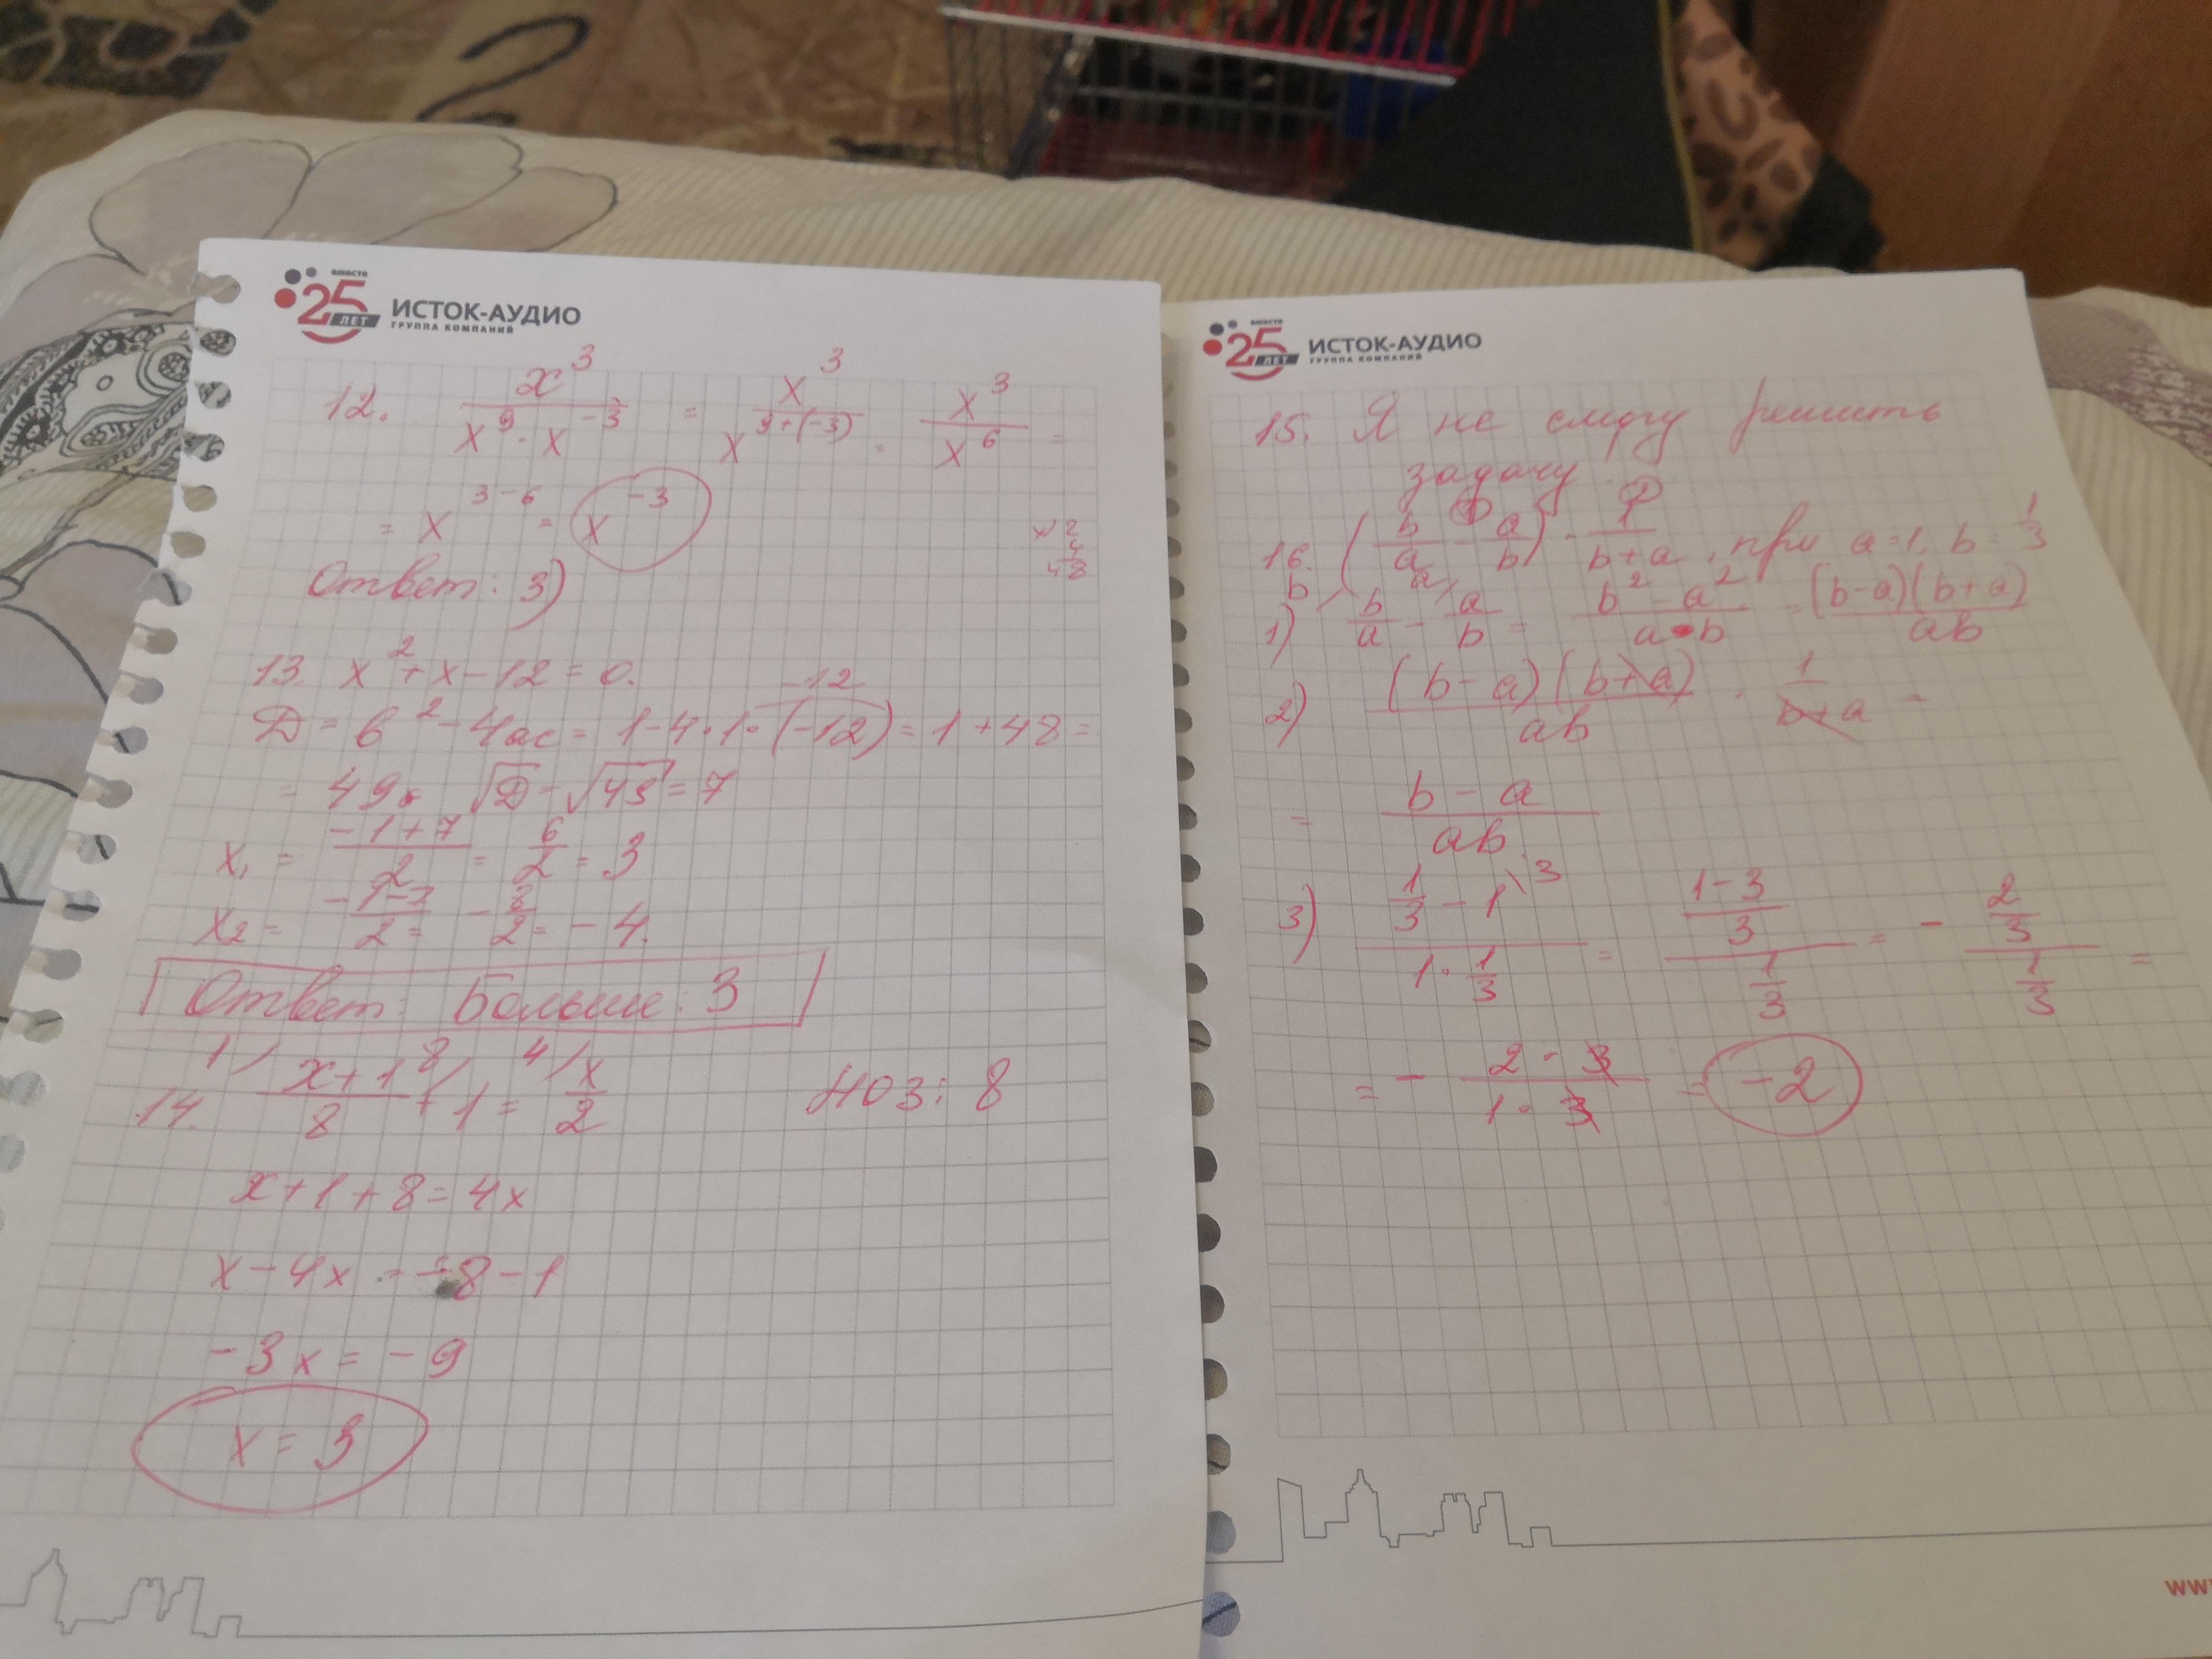 вместе
25 ЛЕТ
ИСТОК-АУДИО
ГРУППА КОМПАНИЙ
12. x³/(x⁹ · x⁻³) = x³/x⁹⁺⁽⁻³⁾ = x³/x⁶ =
= x³⁻⁶ = x⁻³
Ответ: 3)
13. x² + x - 12 = 0.
-12
D = b² - 4ac = 1 - 4 · 1 · (-12) = 1 + 48 =
= 49. √D = √49 = 7
x₁ = (-1+7)/2 = 6/2 = 3
x₂ = (-1-7)/2 = -8/2 = -4.
Ответ: Больше: 3
14. 1/ (x+1)/8 + 8/ 1 = 4/ x/2 НОЗ: 8
x + 1 + 8 = 4x
x - 4x = -8 - 1
-3x = -9
x = 3
вместе
25 ЛЕТ
ИСТОК-АУДИО
ГРУППА КОМПАНИЙ
15. Я не смогу решить
задачу.
16. (b/a - a/b) · 1/(b+a), при a = 1, b = 1/3
1) b/ b/a - a/ a/b = (b² - a²)/(a·b) = (b-a)(b+a)/ab
2) (b-a)(b+a)/ab · 1/(b+a) =
= (b-a)/ab
3) (1/3 - 1\3)/(1 · 1/3) = ((1-3)/3)/(1/3) = - (2/3)/(1/3) =
= - (2 · 3)/(1 · 3) = -2